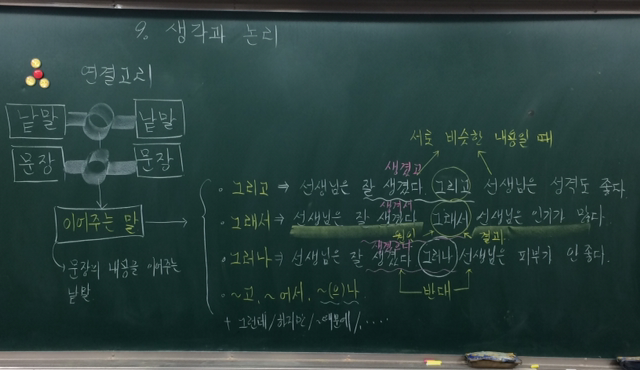 9. 생각과 논리
연결고리
낱말 낱말
문장 문장
이어주는 말
문장의 내용을 이어주는
낱말
서로 비슷한 내용일 때
생겼고
· 그리고 ⇒ 선생님은 잘 생겼다 그리고 선생님은 성격도 좋다.
생겨서
· 그래서 ⇒ 선생님은 잘 생겼다 그래서 선생님은 인기가 많다.
원인 결과
생겼으나
· 그러나 ⇒ 선생님은 잘 생겼다 그러나 선생님은 피부가 안 좋다.
반대
· ~고, ~어서, ~(으)나
+ 그런데/하지만/~때문에/....